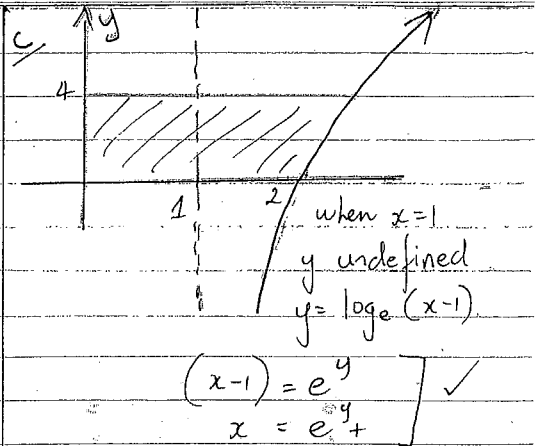 c/
y
4
1
2
when x=1
y undefined
y = logₑ (x-1).
(x-1) = e^y ✓
x = e^y +